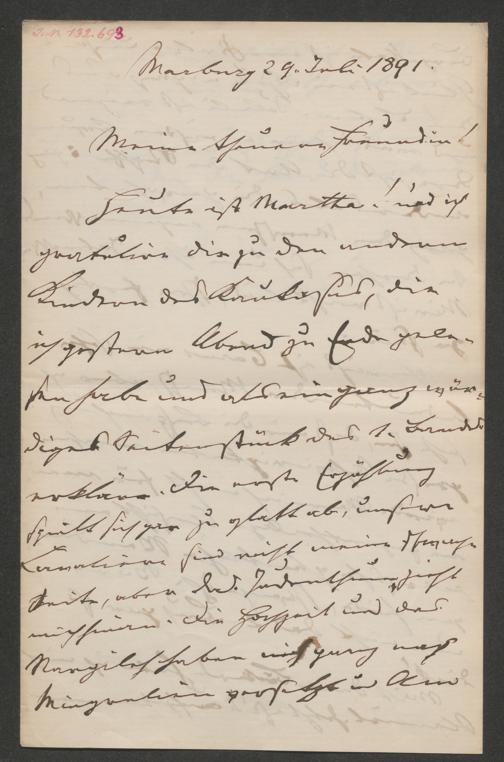 I.N. 132.693
Marburg 29. Juli 1891.
Meine theure Freundin!
Heute ist Martha! und ich
gratulire dir zu den andern
Kindern des Kaukasus, die
ich gestern Abend zu Ende gele-
sen habe und als ein ganz wür-
diges Seitenstück des 1. Bandes
erkläre. Die erste Erzählung
spielt sich zu glatt ab, unsere
Cavaliere sind nicht meine schwache
Seite, aber das Judenthum zieht
mich an. Die Hochzeit und das
Nargileh haben mich ganz nach
Mingrelien versetzt u